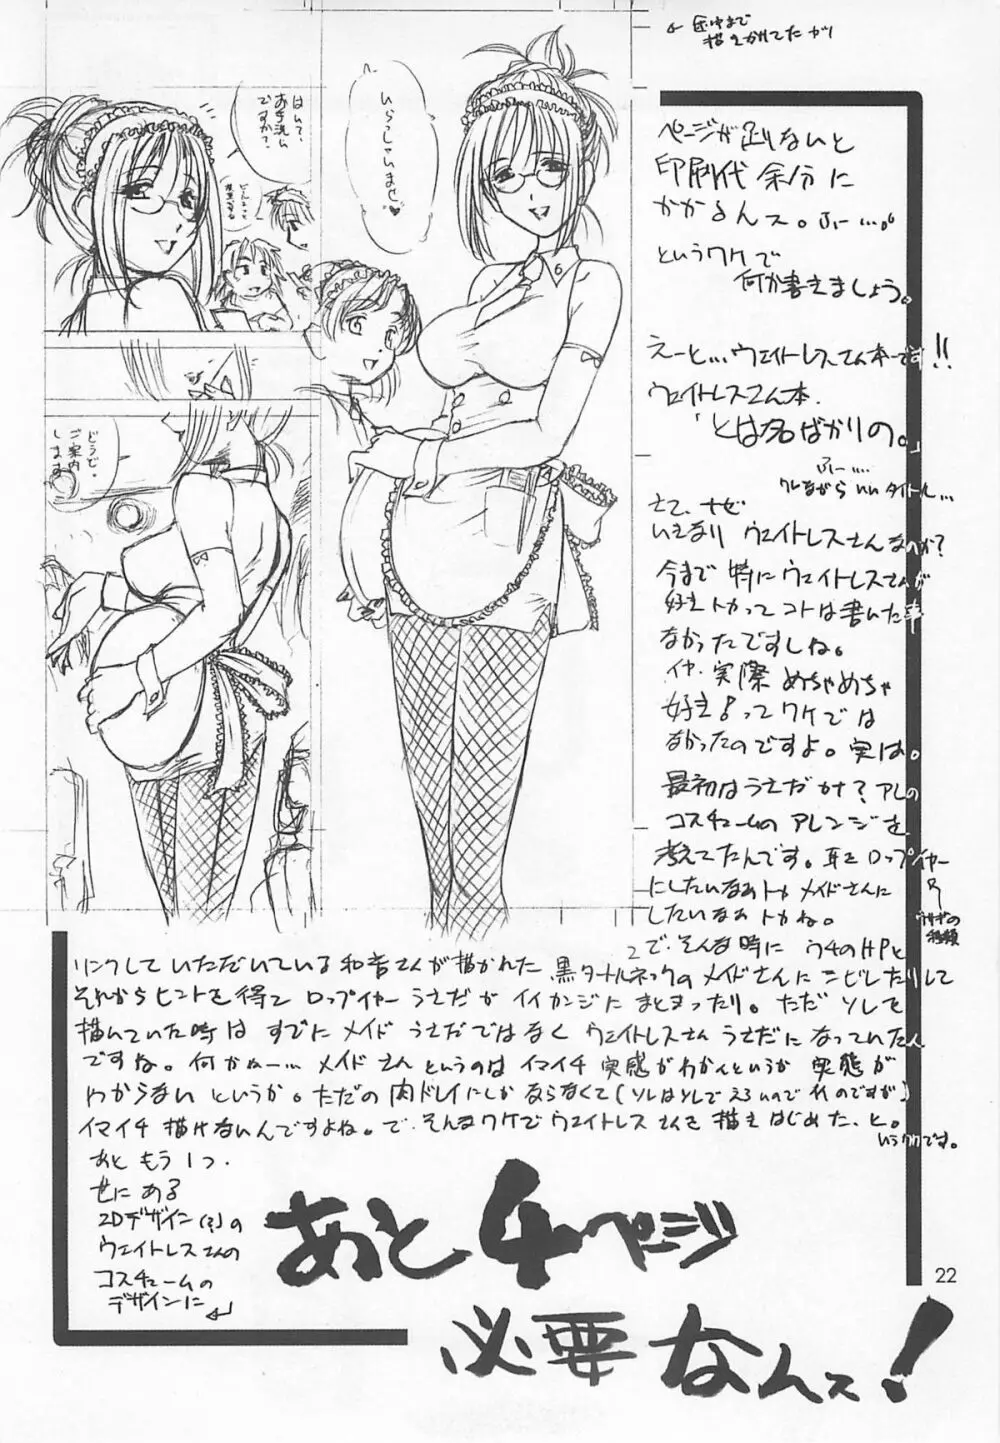 ← 途中まで
描きかけてたがり
ページが足りないと
印刷代余分に
かかるんス。ふー…。
というワケで
何か書きましょう。
えーと…ウェイトレスさん本です!!
ウェイトレスさん本.
「とは名ばかりの。」
ふー….
ワレながらいいタイトル…
さて、ナゼ
いきなりウェイトレスさんなのか?
今まで特にウェイトレスさんが
好きトカってコトは書いた事
なかったですしね。
イヤ、実際めちゃめちゃ
好き!ってワケでは
なかったのですよ。実は。
最初はうさだかナ?アレの
コスチュームのアレンジを
考えてたんです。耳をロップイヤー
にしたいなぁトカメイドさんに
したいなぁトカね。
ウサギの
種類
で、そんな時にウチのHPと
リンクしていただいている和音さんが描かれた黒タートルネックのメイドさんにシビレたりして
それからヒントを得てロップイヤーうさだがイイカンジにまとまったり。ただソレを
描いていた時はすでにメイドうさだではなくウェイトレスさんうさだになっていたん
ですね。何かねー…メイドさんというのはイマイチ実感がわかんというか実態が
わからないというか。ただの肉ドレイにしかならなくて(ソレはソレでえろいので良いのですが)
イマイチ描けないんですよね。で、そんなワケでウェイトレスさんを描きはじめた、と。
いうワケです。
あともう1つ.
世にある
2Dデザイン(?)の
ウェイトレスさんの
コスチュームの
デザインに
あと4ページ
必要なんス!
22
いらっしゃいませ♥
はいて、
お手洗い
ですか?
どうぞ。
ご案内
します